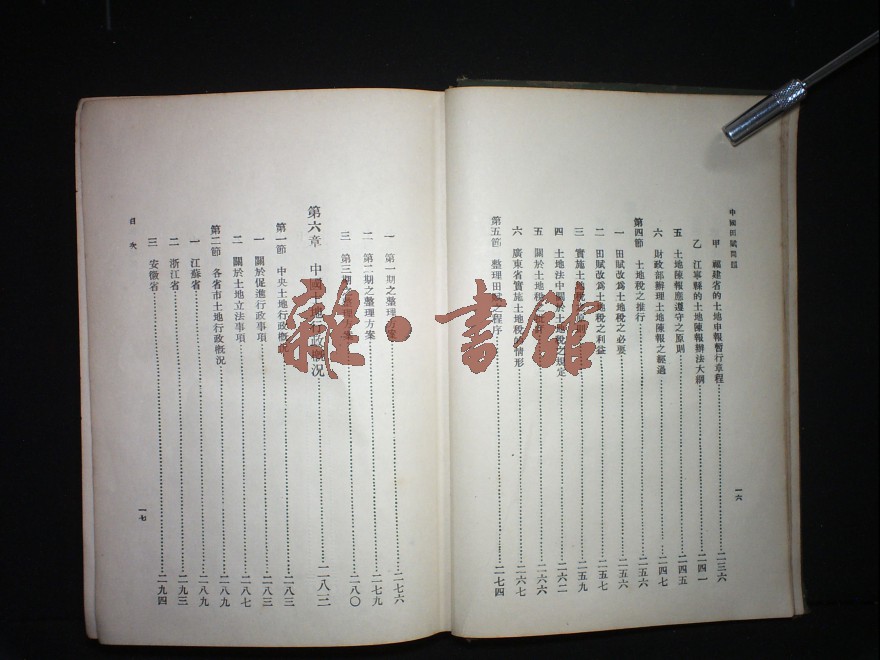 中國田賦問題
甲 福建省的土地申報暫行章程 二三六
乙 江寧縣的土地陳報辦法大綱 二四一
五 土地陳報應遵守之原則 二四五
六 財政部辦理土地陳報之經過 二四七
第四節 土地稅之推行 二五六
一 田賦改爲土地稅之必要 二五六
二 田賦改爲土地稅之利益 二五七
三 實施土地稅 二五九
四 土地法中關於土地稅之規定 二六二
五 關於土地稅之 二六六
六 廣東省實施土地稅的情形 二六七
第五節 整理田賦之程序 二七四
一六
一 第一期之整理方案 二七六
二 第二期之整理方案 二七九
三 第三期之整理方案 二八〇
第六章 中國土地行政概況 二八三
第一節 中央土地行政概況 二八三
一 關於促進行政事項 二八三
二 關於土地立法事項 二八七
第二節 各省市土地行政概況 二八九
一 江蘇省 二八九
二 浙江省 二九三
三 安徽省 二九四
目次
一七
雜·書館